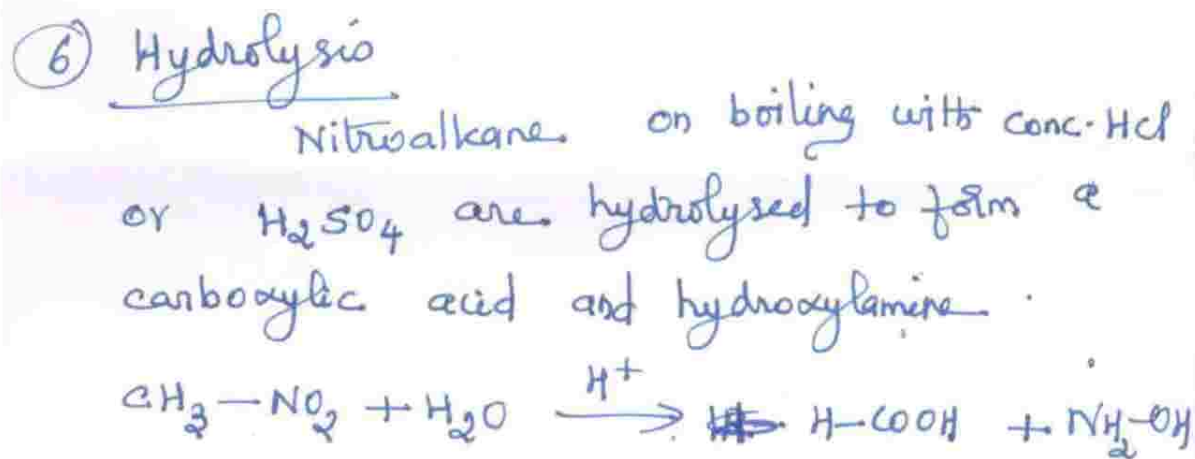 6 Hydrolysis
Nitroalkane on boiling with conc. HCl
or H₂SO₄ are hydrolysed to form a
carboxylic acid and hydroxylamine.
CH₃–NO₂ + H₂O —H⁺→ H–COOH + NH₂–OH